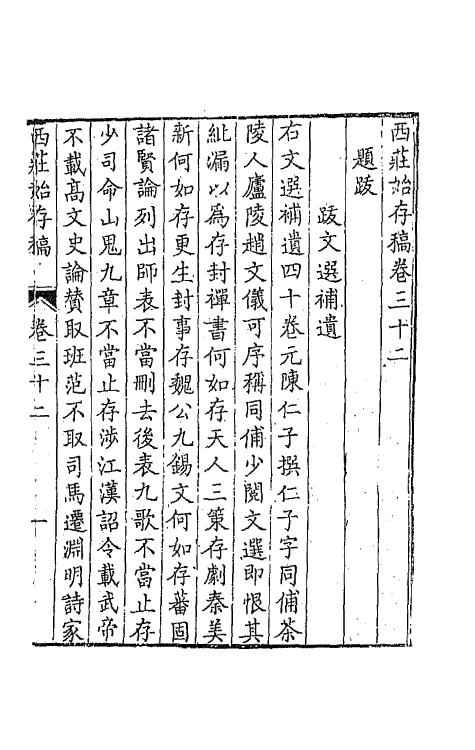 西莊始存稿卷三十二
題跋
跋文選補遺
右文選補遺四十卷元陳仁子撰仁子字同俌茶
陵人廬陵趙文儀可序稱同俌少閱文選即恨其
紕漏以為存封禪書何如存天人三策存劇秦美
新何如存更生封事存魏公九錫文何如存蕃固
諸賢論列出師表不當刪去後表九歌不當止存
少司命山鬼九章不當止存涉江漢詔令載武帝
不載高文史論贊取班范不取司馬遷淵明詩家
西莊始存稿 卷三十二 一